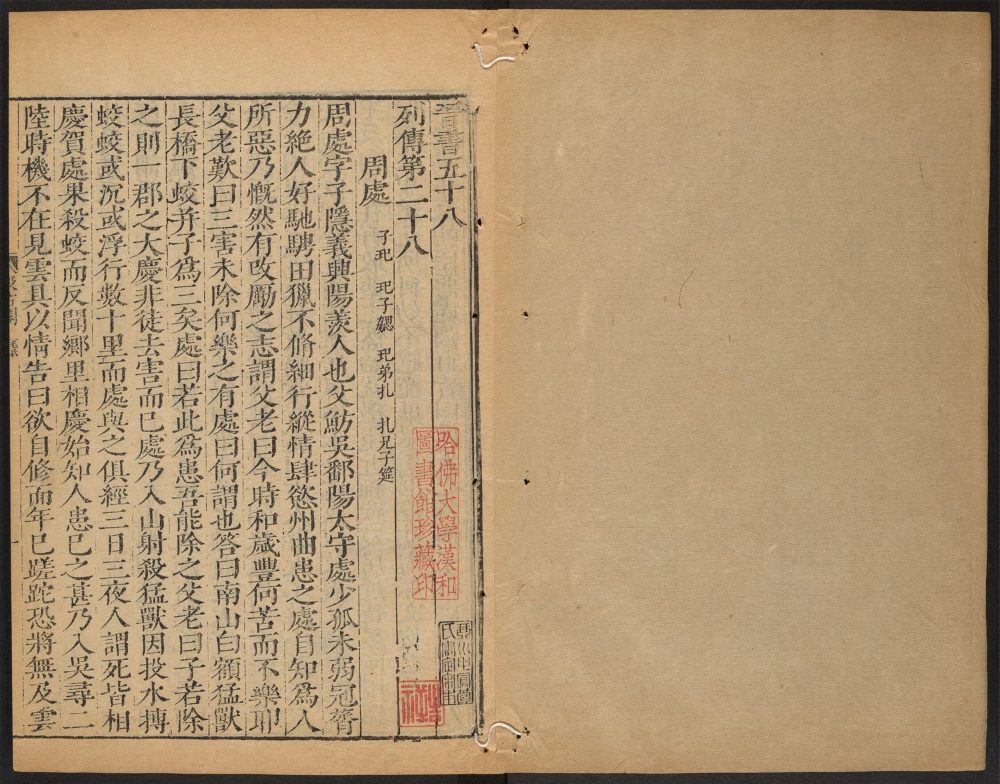 晉書五十八
列傳第二十八
周處 子玘 玘子勰 玘弟札 札兄子莚
周處字子隱義興陽羨人也父魴吳鄱陽太守處少孤未弱冠膂
力絶人好馳騁田獵不脩細行縱情肆慾州曲患之處自知爲人
所惡乃慨然有改勵之志謂父老曰今時和歲豐何苦而不樂耶
父老歎曰三害未除何樂之有處曰何謂也答曰南山白額猛獸
長橋下蛟并子爲三矣處曰若此爲患吾能除之父老曰子若除
之則一郡之大慶非徒去害而已處乃入山射殺猛獸因投水搏
蛟蛟或沉或浮行數十里而處與之俱經三日三夜人謂死皆相
慶賀處果殺蛟而反聞鄉里相慶始知人患已之甚乃入吳尋二
陸時機不在見雲具以情告曰欲自修而年已蹉跎恐將無及雲
哈佛大學漢和
圖書館珍藏印